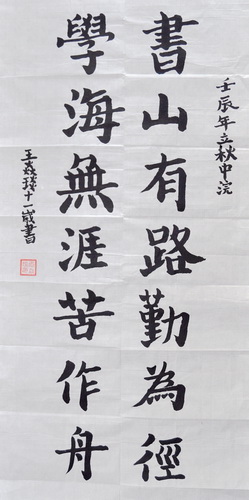 壬辰年立秋中浣
書山有路勤為徑
學海無涯苦作舟
十一歲書